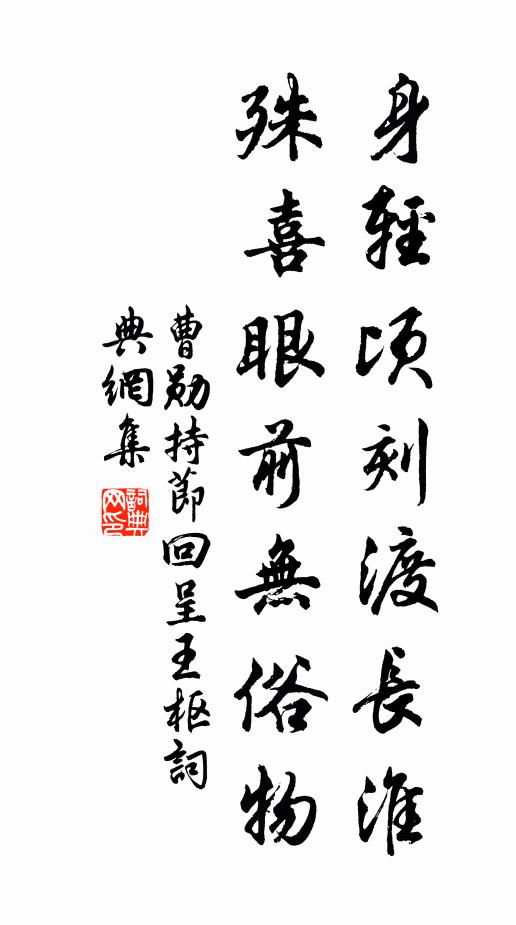 身輕頃刻渡長淮
殊喜眼前無俗物
曹勛持節回呈王枢詞
典網集
詞典
网印